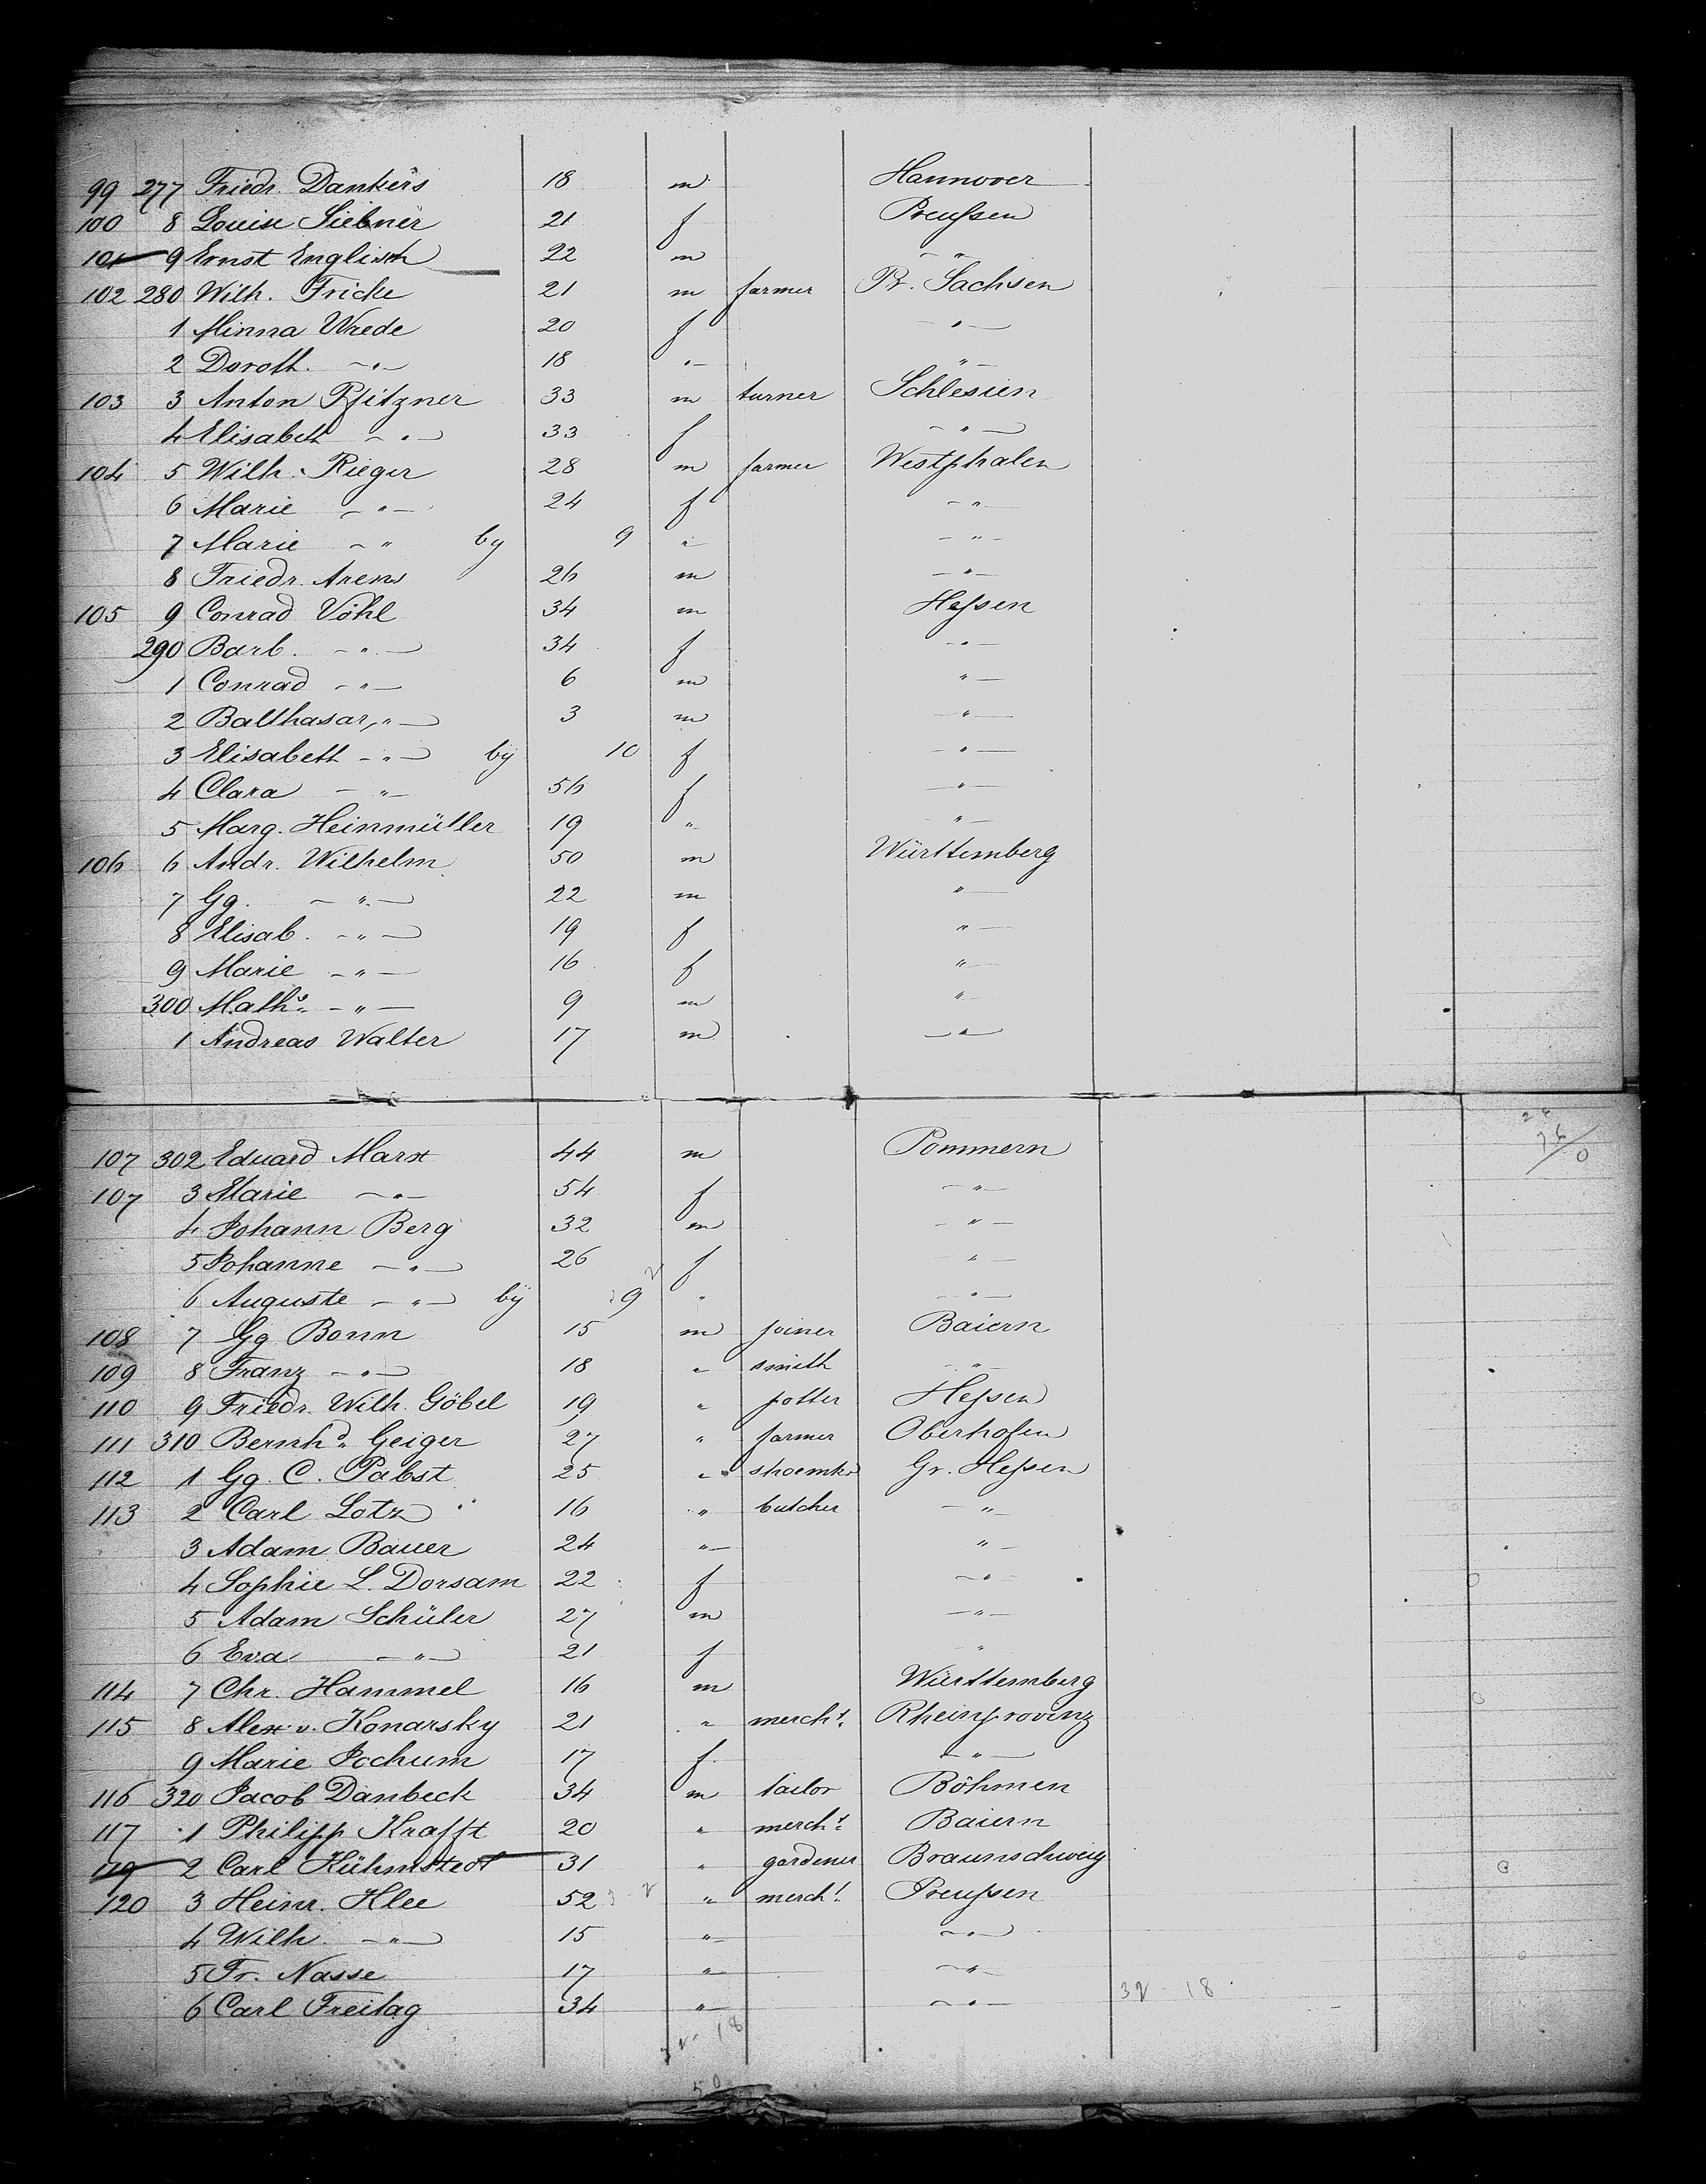 99 277 Friedr. Dankers 18 m Hannover
100 8 Louise Siebner 21 f Preußen
101 9 Ernst Englisch 22 m - " -
102 280 Wilh. Fricke 21 m farmer Pr. Sachsen
1 Minna Wrede 20 f - " -
2 Doroth. - " - 18 " - " -
103 3 Anton Pfitzner 33 m turner Schlesien
4 Elisabeth - " - 33 f - " -
104 5 Wilh. Rieger 28 m farmer Westphalen
6 Marie - " - 24 f - " -
7 Marie - " by 9 " - " -
8 Friedr. Arens 26 m - " -
105 9 Conrad Vöhl 34 m Heßen
290 Barb. - " - 34 f - " -
1 Conrad - " - 6 m " -
2 Balthasar - " - 3 m - " -
3 Elisabeth - " - by 10 f - " -
4 Clara - " - 56 f - " -
5 Marg. Heinmüller 19 " - " -
106 6 Andr. Wilhelm 50 m Württemberg
7 Gg. - " - 22 m " -
8 Elisab. - " - 19 f " -
9 Marie - " - 16 f " -
300 Maths. - " - 9 m " -
1 Andreas Walter 17 m - " -
107 302 Eduard Marx 44 m Pommern
107 3 Marie - " - 54 f - " -
4 Johann Berg 32 m - " -
5 Johanne - " - 26 f " -
6 Auguste - " - by 9 " - " -
108 7 Gg Bonn 15 m joiner Baiern
109 8 Franz - " - 18 " smith - " -
110 9 Friedr. Wilh. Göbel 19 " potter Heßen
111 310 Bernhd. Geiger 27 " farmer Oberhofen
112 1 Gg. C. Pabst 25 " shoemkr Gr. Heßen
113 2 Carl Lotz 16 " butcher - " -
3 Adam Bauer 24 " - " -
4 Sophie L. Dorsam 22 f - " -
5 Adam Schüler 27 m - " -
6 Eva - " - 21 f "
114 7 Chr. Hammel 16 m Württemberg
115 8 Alex. v. Konarsky 21 " mercht. Rheinprovinz
9 Marie Jochum 17 f. - " -
116 320 Jacob Danbeck 34 m tailor Böhmen
117 1 Philipp Krafft 20 " mercht. Baiern
119 2 Carl Kühmstedt 31 " gardener Braunschweig
120 3 Heinr. Klee 52 " mercht. Preußen
4 Wilh. - " - 15 " - " -
5 Fr. Nasse 17 " - " -
6 Carl Freitag 34 " - " -
32 - 18
32 - 18
50